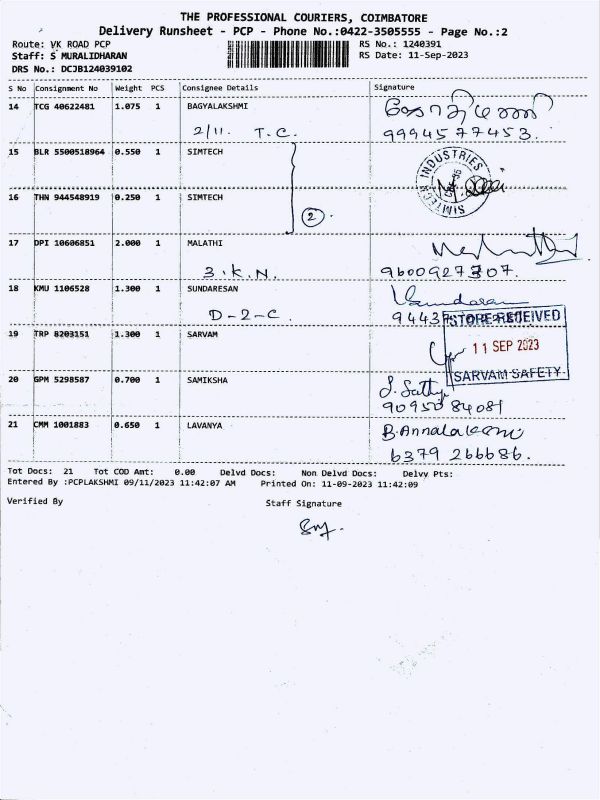 THE PROFESSIONAL COURIERS, COIMBATORE
Delivery Runsheet - PCP - Phone No.:0422-3505555 - Page No.:2
Route: VK ROAD PCP
Staff: S MURALIDHARAN
DRS No.: DCJB124039102
RS No.: 1240391
RS Date: 11-Sep-2023
S No Consignment No Weight PCS Consignee Details Signature
14 TCG 40622481 1.075 1 BAGYALAKSHMI
2/11. T.C. 9994577453.
15 BLR 5500518964 0.550 1 SIMTECH
SIMTECH INDUSTRIES
16 THN 944548919 0.250 1 SIMTECH
2.
17 DPI 10606851 2.000 1 MALATHI
3.K.N. 9600927307.
18 KMU 1106528 1.300 1 SUNDARESAN
D-2-C.
STORE RECEIVED
19 TRP 8203151 1.300 1 SARVAM
11 SEP 2023
SARVAM SAFETY.
20 GPM 5298587 0.700 1 SAMIKSHA
9095084081
21 CMM 1001883 0.650 1 LAVANYA
6379 266686.
Tot Docs: 21 Tot COD Amt: 0.00 Delvd Docs: Non Delvd Docs: Delvy Pts:
Entered By :PCPLAKSHMI 09/11/2023 11:42:07 AM Printed On: 11-09-2023 11:42:09
Verified By Staff Signature